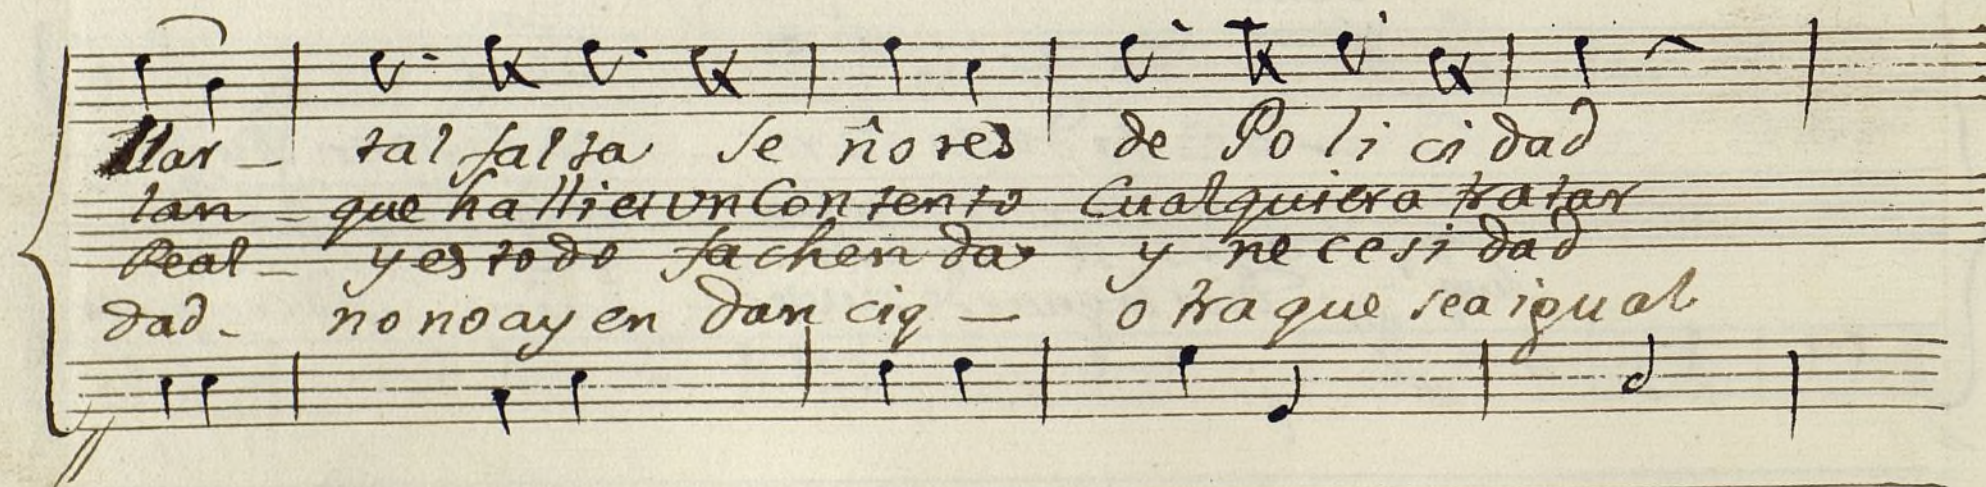 llar - tal falta se ñores de Po li ci dad
lan - que hallies un Contento Cualquiera tratar
Real - y es todo fachenda y ne cesi dad
dad - no no ay en dan ciq - o tra que sea igual